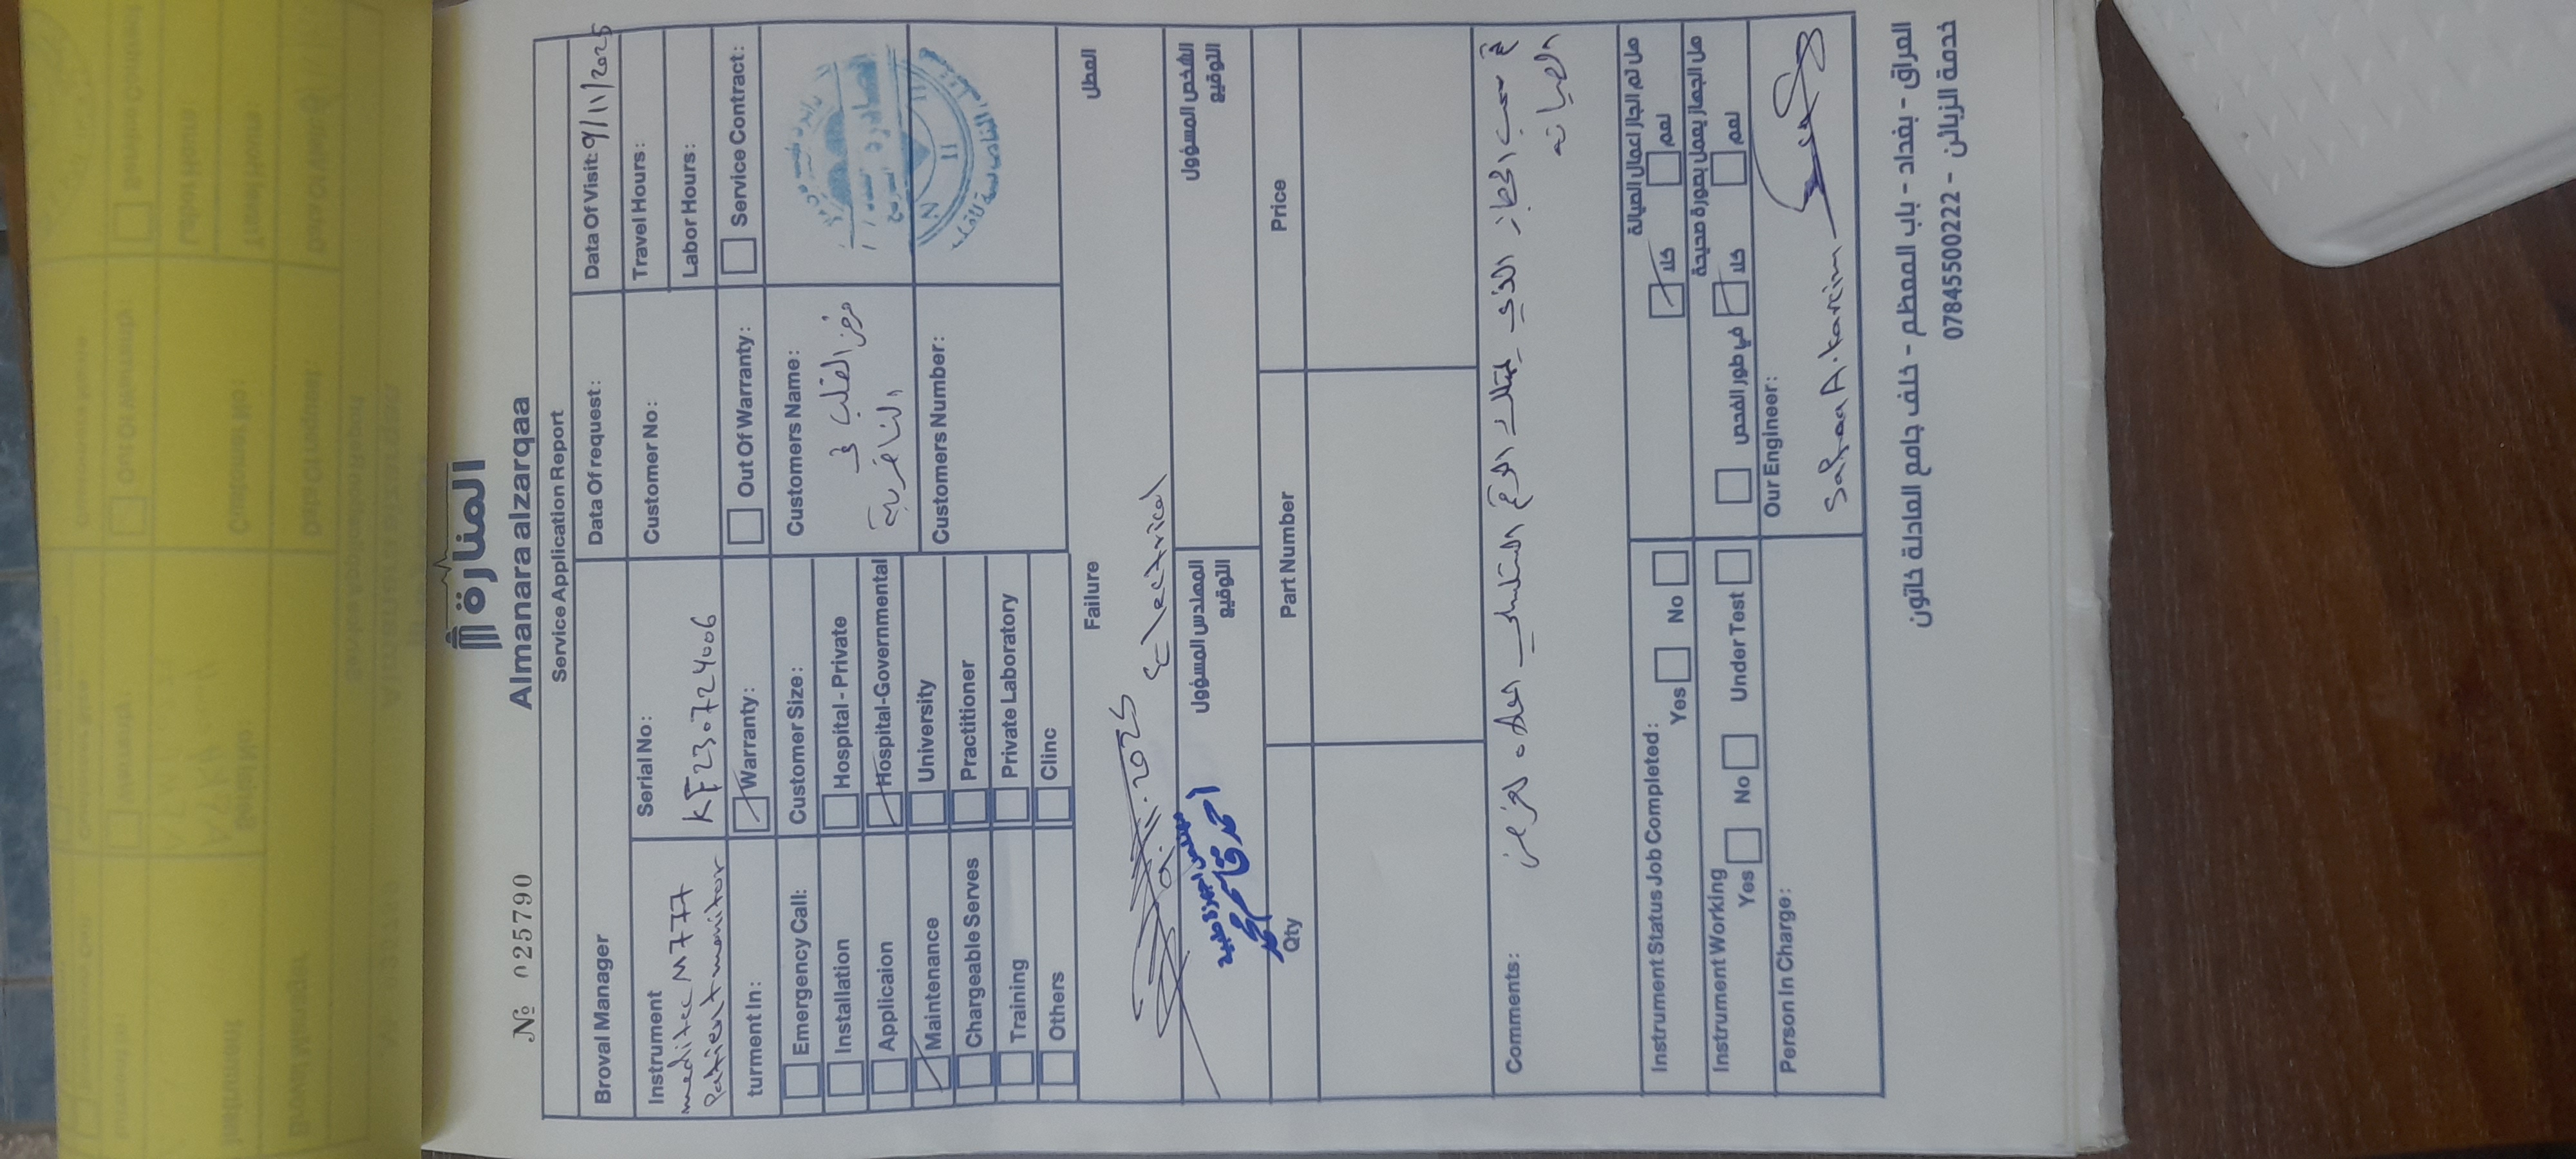 المنارة
Almanara alzarqaa
№ 025790
Service Application Report
Broval Manager
Data Of request:
Data Of Visit: 9/11/2025
Instrument
meditec M777
Patient monitor
Serial No:
KF230724006
Customer No:
Travel Hours:
Labor Hours:
turment In:
Warranty:
Out Of Warranty:
Service Contract:
Emergency Call:
Installation
Applicaion
Maintenance
Chargeable Serves
Training
Others
Customer Size:
Hospital - Private
Hospital-Governmental
University
Practitioner
Private Laboratory
Clinc
Customers Name:
مركز القلب في
الناصرية
Customers Number:
Failure
العطل
Electrical
9.11.2025
المهندس المسؤول
التوقيع
الشخص المسؤول
التوقيع
مهندس اجهزة طبية
احمد قاسم
Qty
Part Number
Price
Comments:
تم سحب الجهاز الذي يمتلك الرقم التسلسلي اعلاه لغرض
الصيانه
Instrument Status Job Completed:
Yes
No
هل تم انجاز اعمال الصيانة
كلا
نعم
Instrument Working
Yes
No
Under Test
هل الجهاز يعمل بصورة صحيحة
في طور الفحص
كلا
نعم
Person In Charge:
Our Engineer:
Safaa A.kareim
العراق - بغداد - باب المعظم - خلف جامع العادلة خاتون
خدمة الزبائن - 07845500222